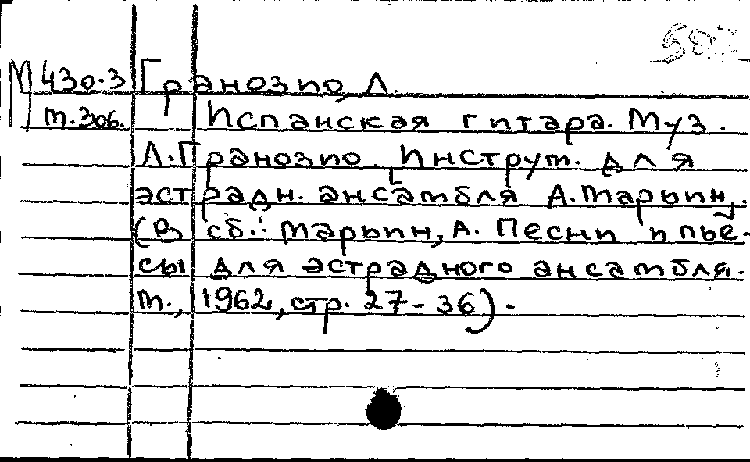 М 430.3 Гранозио, Л.
т. 306. Испанская гитара. Муз.
Л. Гранозио. Инструм. для
эстрадн. ансамбля А. Марьин,.
(В сб.: Марьин, А. Песни и пье-
сы для эстрадного ансамбля.
т., 1962, стр. 27-36).